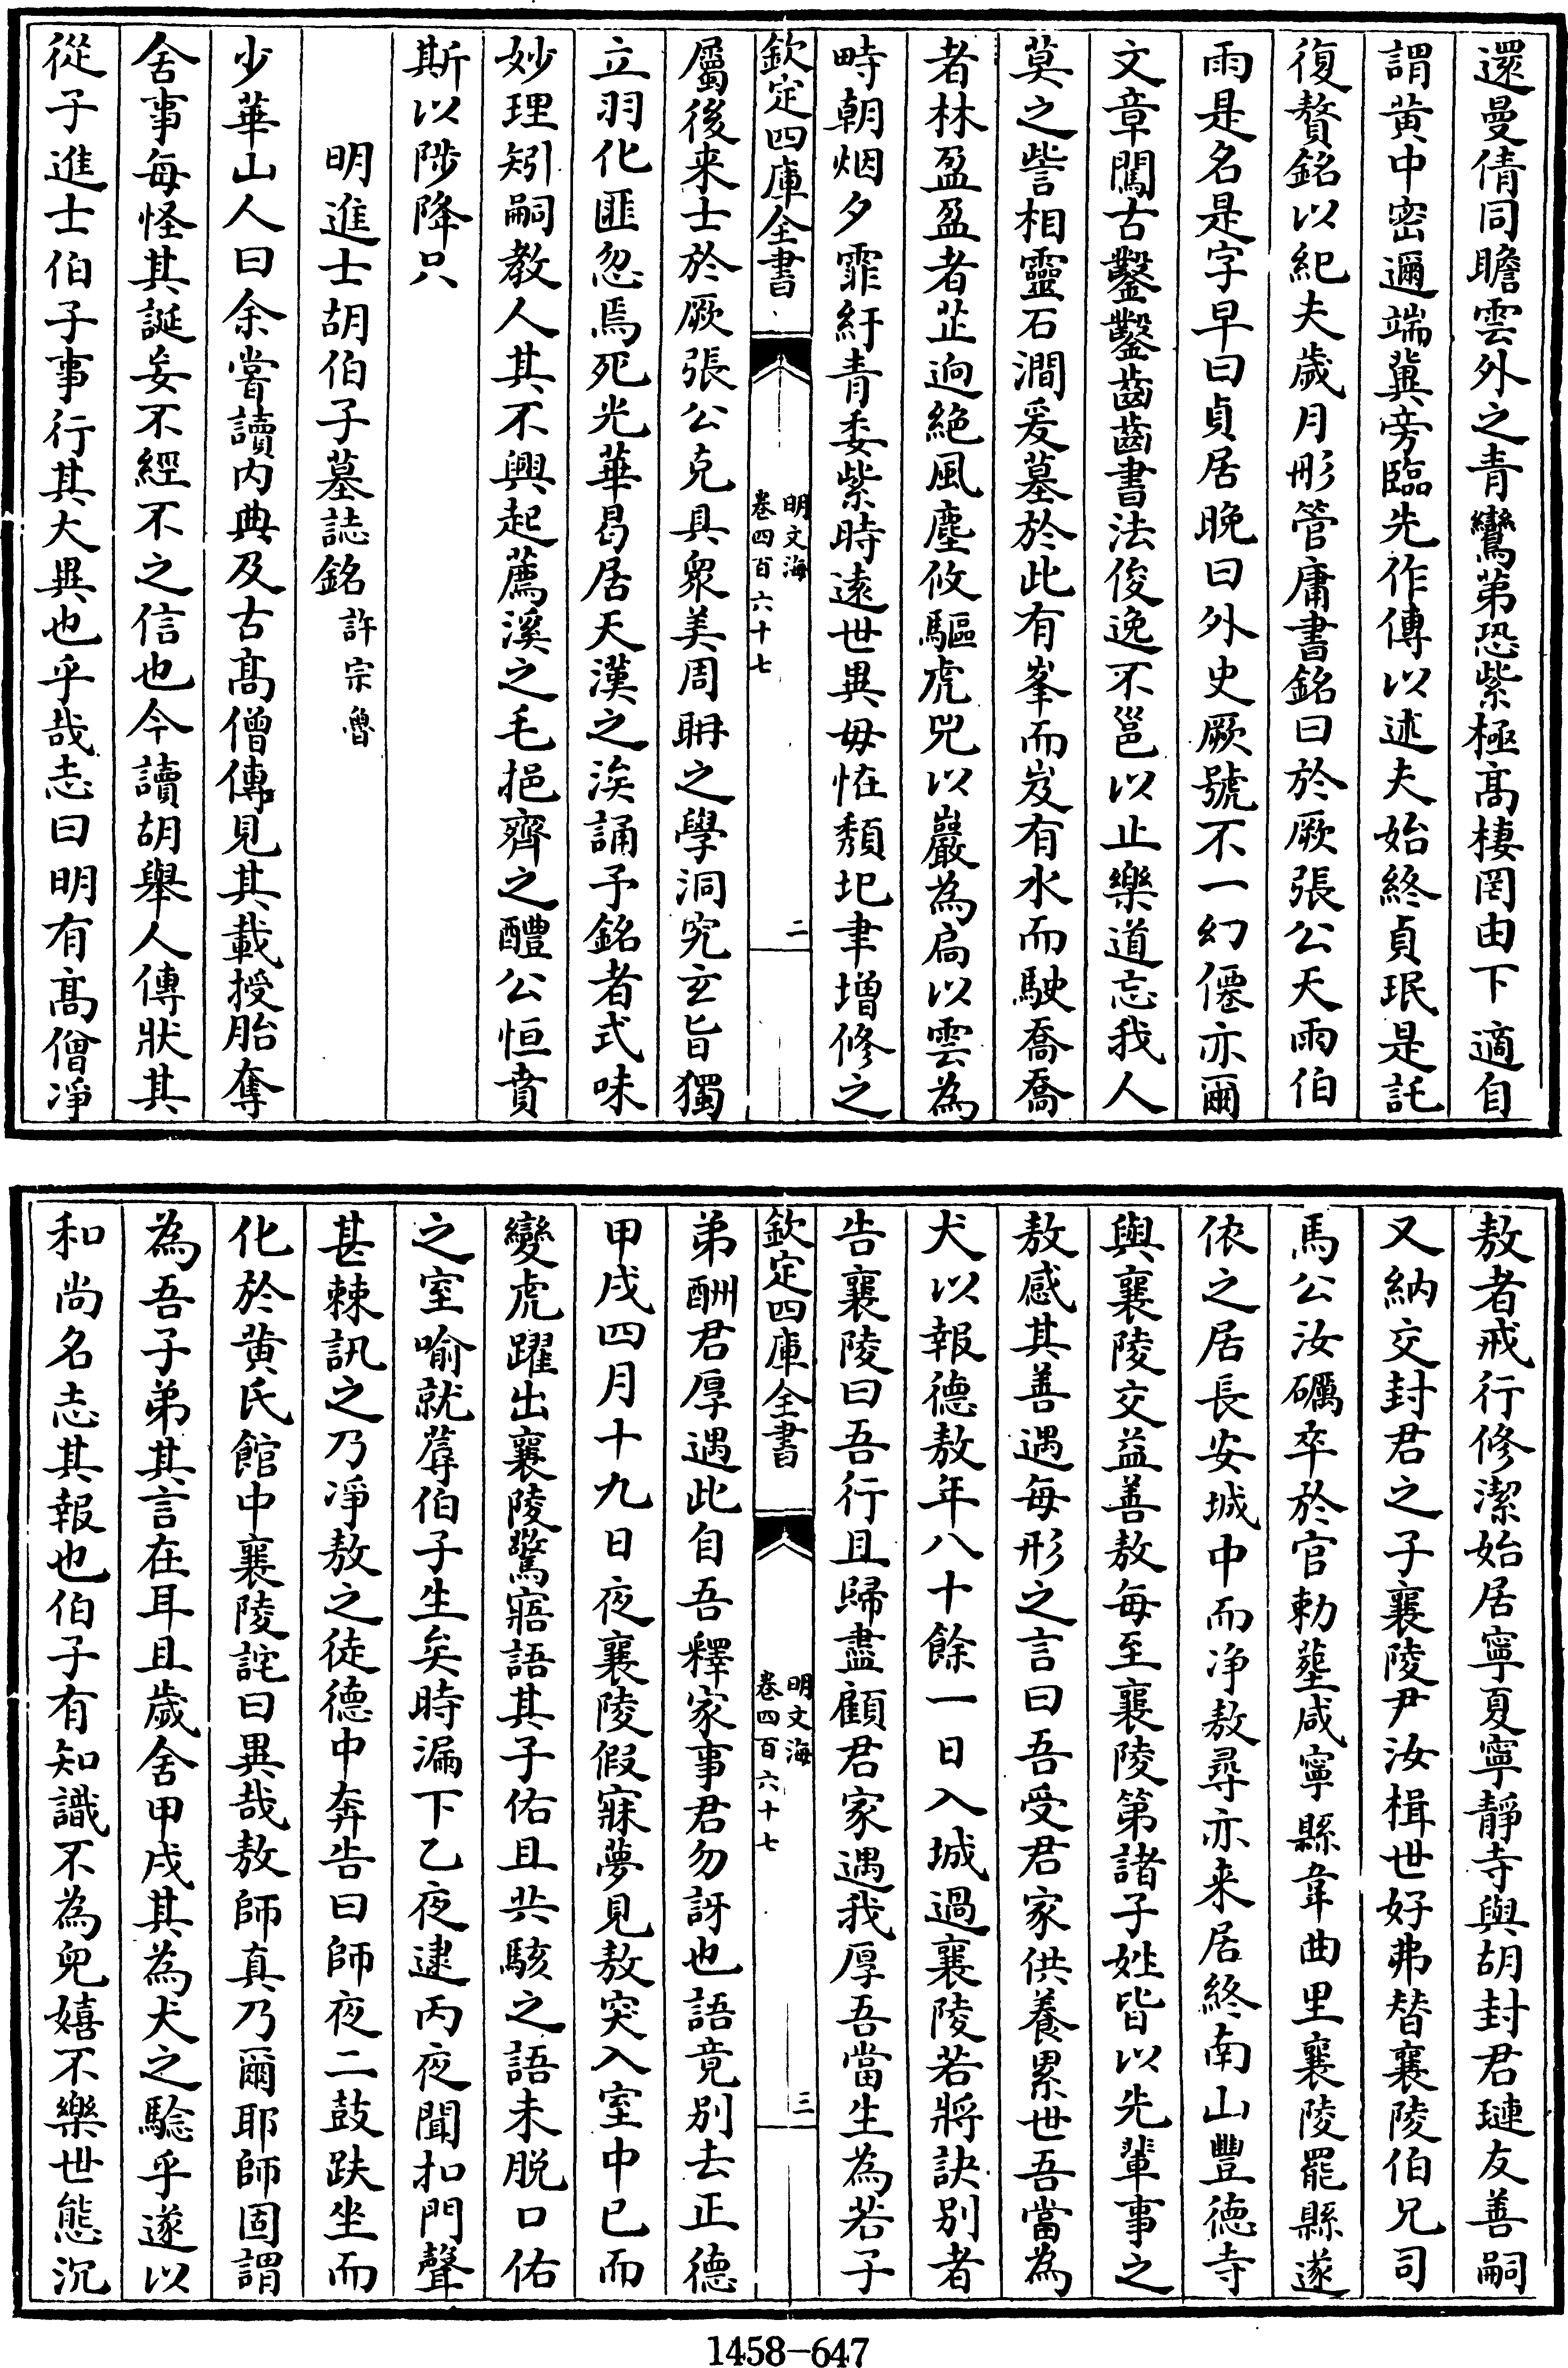 還曼倩同瞻雲外之青鸞第恐紫極髙棲罔由下適自
謂黄中密邇端冀旁臨先作傳以述夫始終貞珉是託
復贅銘以紀夫歲月彤管庸書銘曰於厥張公天雨伯
雨是名是字早曰貞居晚曰外史厥號不一幻僊亦爾
文章闖古鑿鑿齒齒書法俊逸不邕以止樂道忘我人
莫之訾相靈石澗爰墓於此有峯而岌有水而駛喬喬
者林盈盈者芷逈絶風塵攸驅虎兕以巖為扃以雲為
畤朝烟夕霏紆青委紫時逺世異毋怪頽圯聿增修之
欽定四庫全書
明文海
卷四百六十七
二
屬後来士於厥張公克具衆美周聃之學洞究𤣥旨獨
立羽化匪忽焉死光華曷居天漢之涘誦予銘者式味
妙理矧嗣教人其不興起薦溪之毛挹齊之醴公恒賁
斯以陟降只
明進士胡伯子墓誌銘許宗魯
少華山人曰余嘗讀内典及古髙僧傳見其載授胎奪
舍事每怪其誕妄不經不之信也今讀胡舉人傳狀其
從子進士伯子事行其大異也乎哉志曰明有髙僧凈
敖者戒行修潔始居寧夏寧靜寺與胡封君璉友善嗣
又納交封君之子襄陵尹汝楫世好弗替襄陵伯兄司
馬公汝礪卒於官勅塟咸寧縣韋曲里襄陵罷縣遂
依之居長安城中而净敖尋亦来居終南山豐德寺
與襄陵交益善敖每至襄陵第諸子姓皆以先輩事之
敖感其善遇每形之言曰吾受君家供養累世吾當為
犬以報德敖年八十餘一日入城過襄陵若將訣别者
告襄陵曰吾行且歸盡顧君家遇我厚吾當生為若子
欽定四庫全書
明文海
卷四百六十七
三
弟酬君厚遇此自吾釋家事君勿訝也語竟别去正德
甲戌四月十九日夜襄陵假寐夢見敖突入室中已而
變虎躍出襄陵驚寤語其子佑且共駭之語未脱口佑
之室喻就蓐伯子生矣時漏下乙夜逮丙夜聞扣門聲
甚棘訊之乃凈敖之徒德中奔告曰師夜二鼓趺坐而
化於黄氏館中襄陵詫曰異哉敖師真乃爾耶師固謂
為吾子弟其言在耳且歲舍甲戌其為犬之騐乎遂以
和尚名志其報也伯子有知識不為兒嬉不樂世態沉
1458-647